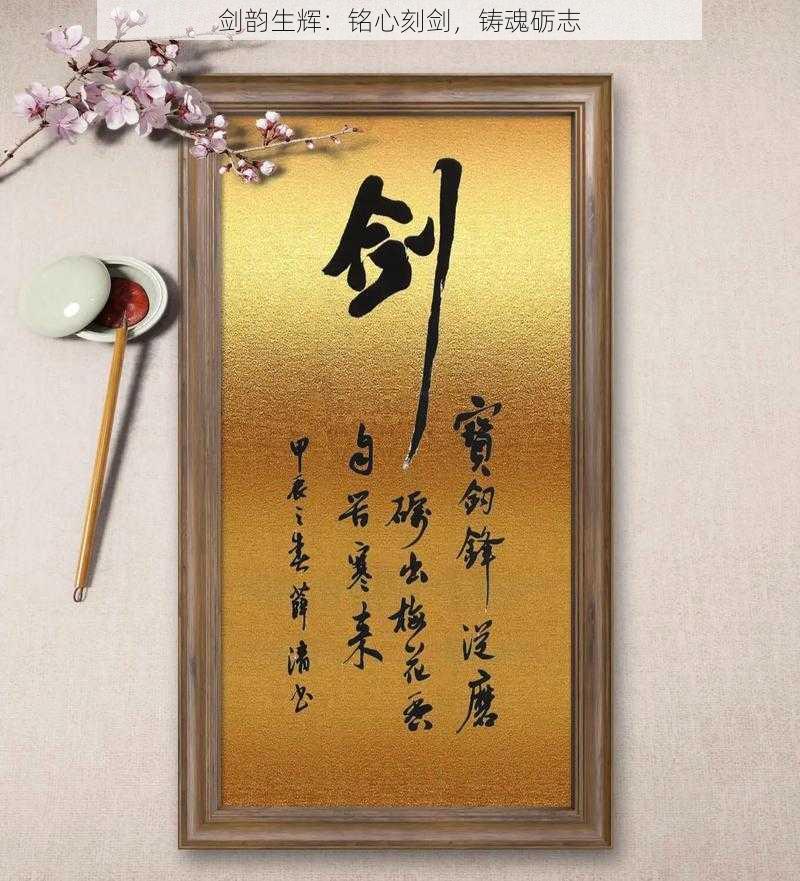 剑韵生辉：铭心刻剑，铸魂砺志
剑
寶釼鋒從磨
砺出梅花香
自苦寒来
甲辰之春薛清书